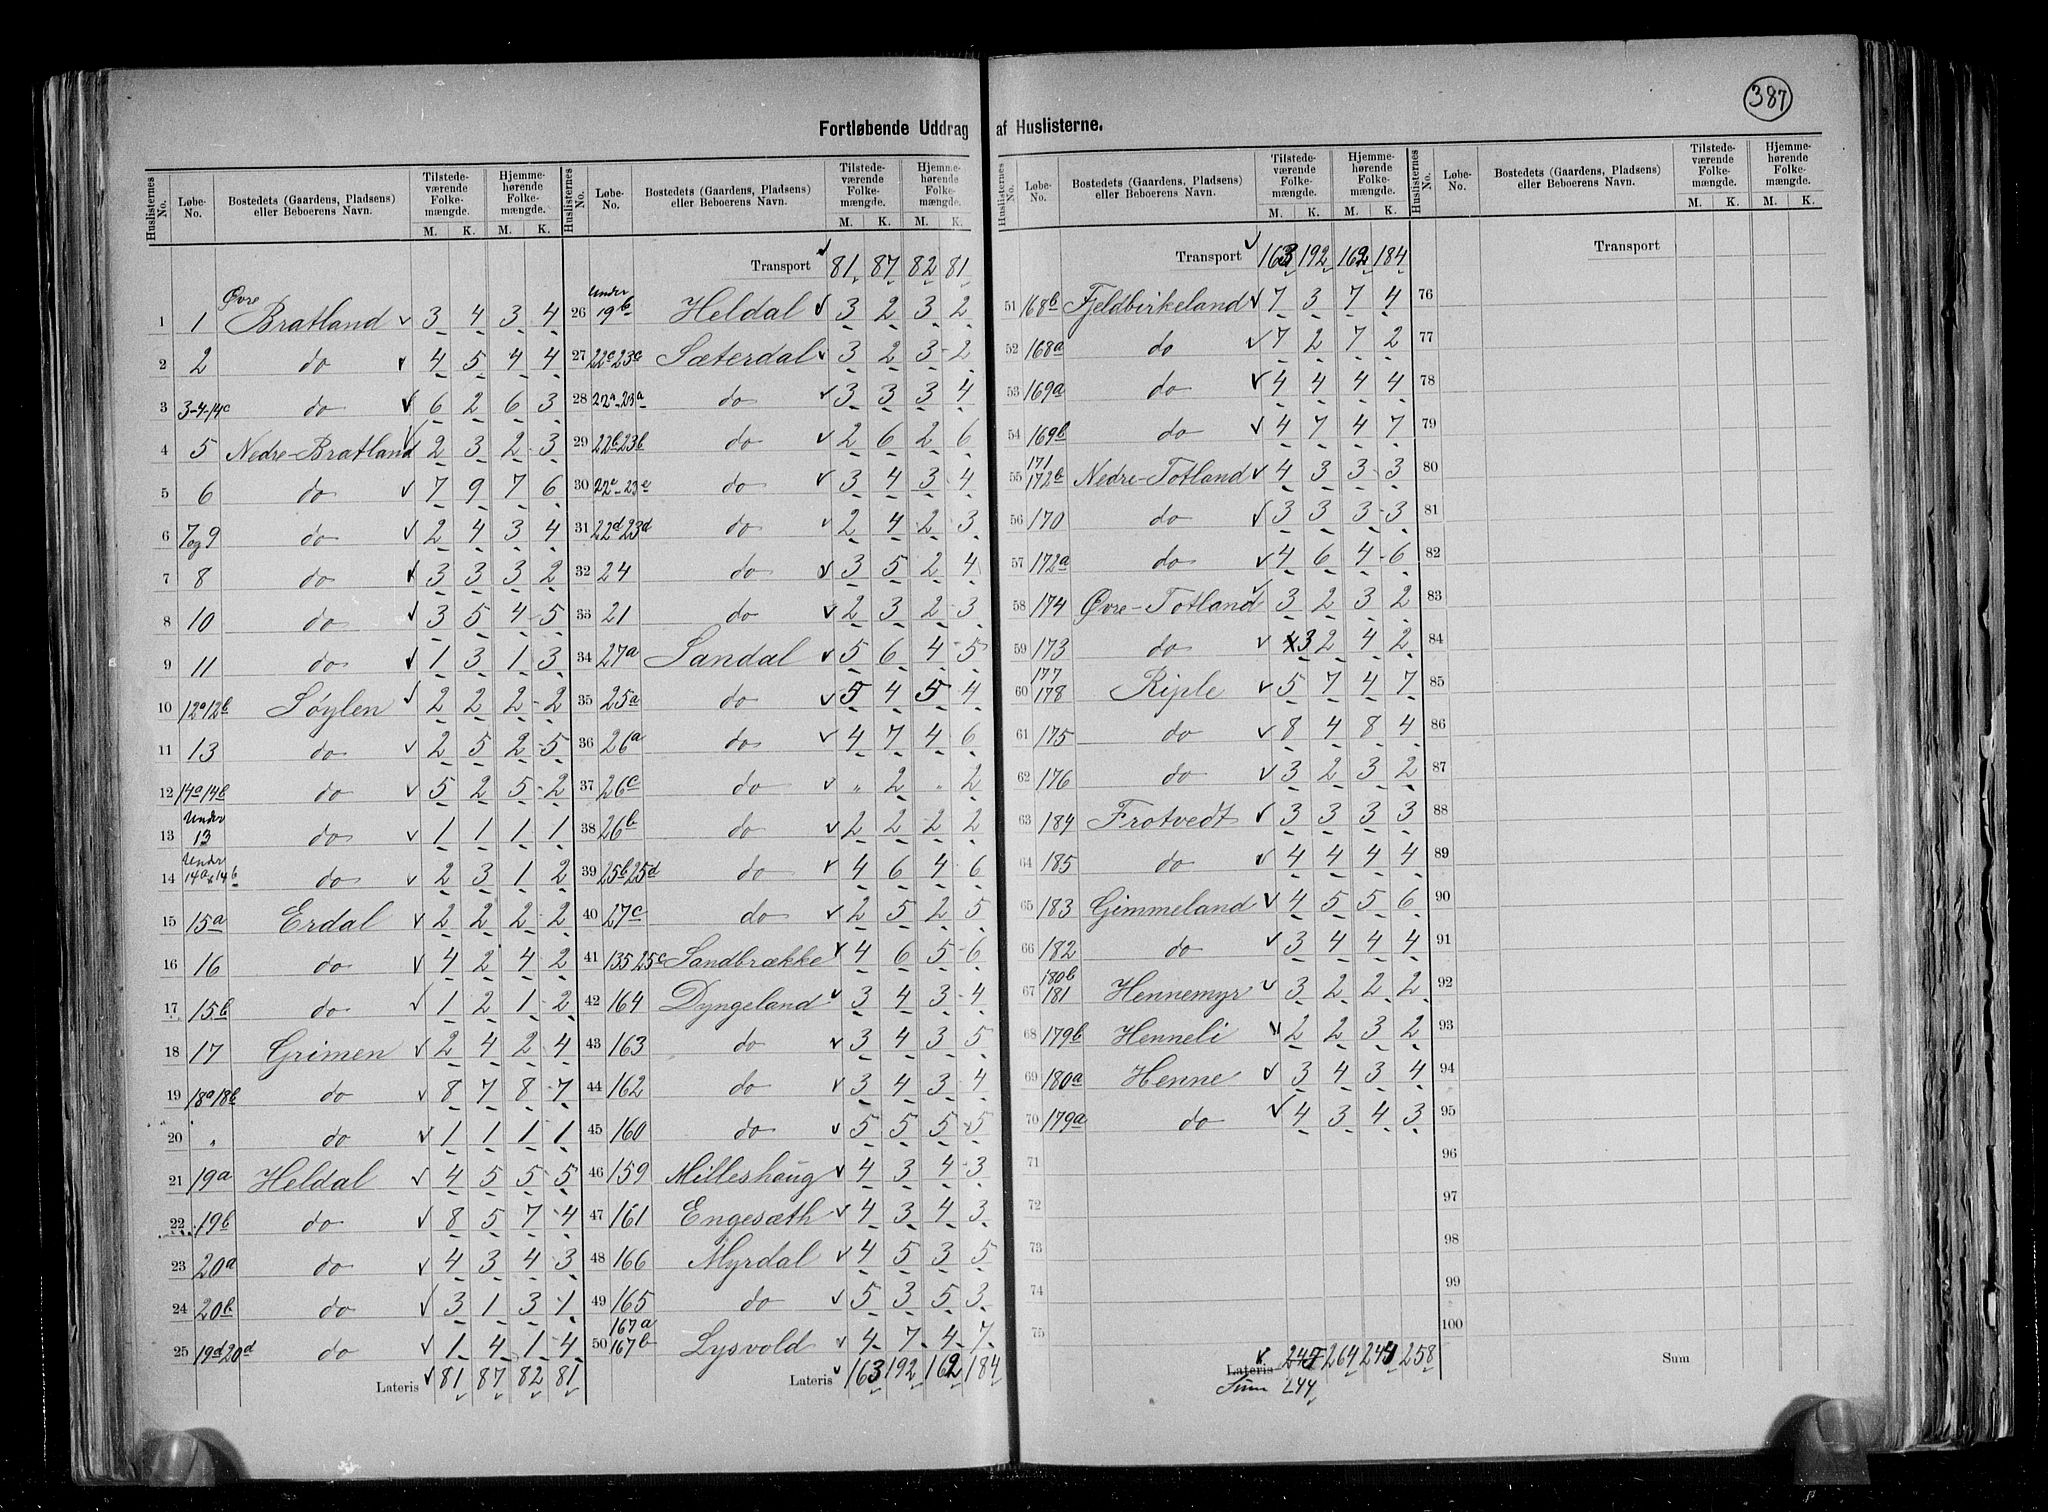 387
Fortløbende Uddrag af Huslisterne.
Huslisternes No. Løbe-No. Bostedets (Gaardens, Pladsens) eller Beboerens Navn. Tilstedeværende Folkemængde. M. K. Hjemmehørende Folkemængde. M. K.
1 1 Øvre Bratland 3 4 3 4
2 2 do 4 5 4 4
3 3-4-14c do 6 2 6 3
4 5 Nedre-Bratland 2 3 2 3
5 6 do 7 9 7 6
6 7og9 do 2 4 3 4
7 8 do 3 3 3 2
8 10 do 3 5 4 5
9 11 do 1 3 1 3
10 12a12b Søylen 2 2 2 2
11 13 do 2 5 2 5
12 14a14b do 5 2 5 2
13 Under 13 do 1 1 1 1
14 Under 14a+14b do 2 3 1 2
15 15a Erdal 2 2 2 2
16 16 do 4 2 4 2
17 15b do 1 2 1 2
18 17 Grimen 2 4 2 4
19 18a18b do 8 7 8 7
20 " do 1 1 1 1
21 19a Heldal 4 5 5 5
22 19b do 8 5 7 4
23 20a do 4 3 4 3
24 20b do 3 1 3 1
25 19d20d do 1 4 1 4
Lateris 81 87 82 81
Huslisternes No. Løbe-No. Bostedets (Gaardens, Pladsens) eller Beboerens Navn. Tilstedeværende Folkemængde. M. K. Hjemmehørende Folkemængde. M. K.
Transport 81 87 82 81
26 Under 19b Heldal 3 2 3 2
27 22c23c Sæterdal 3 2 3 2
28 22a-23a do 3 3 3 4
29 22b23b do 2 6 2 6
30 22e-23e do 3 4 3 4
31 22d23d do 2 4 2 3
32 24 do 3 5 2 4
33 21 do 2 3 2 3
34 27a Sandal 5 6 4 5
35 25a do 5 4 5 4
36 26a do 4 7 4 6
37 26c do " 2 " 2
38 26b do 2 2 2 2
39 25b25d do 4 6 4 6
40 27c do 2 5 2 5
41 135 25c Sandbrække 4 6 5 6
42 164 Dyngeland 3 4 3 4
43 163 do 3 4 3 5
44 162 do 3 4 3 4
45 160 do 5 5 5 5
46 159 Milleshaug 4 3 4 3
47 161 Engesæth 4 3 4 3
48 166 Myrdal 4 5 3 5
49 165 do 5 3 5 3
50 167a 167b Lysvold 4 7 4 7
Lateris 163 192 162 184
Huslisternes No. Løbe-No. Bostedets (Gaardens, Pladsens) eller Beboerens Navn. Tilstedeværende Folkemængde. M. K. Hjemmehørende Folkemængde. M. K.
Transport 163 192 162 184
51 168b Fjeldbirkeland 7 3 7 4
52 168a do 7 2 7 2
53 169a do 4 4 4 4
54 169b do 4 7 4 7
55 171 172b Nedre-Totland 4 3 3 3
56 170 do 3 3 3 3
57 172a do 4 6 4 6
58 174 Øvre-Totland 3 2 3 2
59 173 do 3 2 4 2
60 177 178 Riple 5 7 4 7
61 175 do 8 4 8 4
62 176 do 3 2 3 2
63 184 Frotvedt 3 3 3 3
64 185 do 4 4 4 4
65 183 Gimmeland 4 5 5 6
66 182 do 3 4 4 4
67 180b 181 Hennemyr 3 2 2 2
68 179b Henneli 2 2 3 2
69 180a Henne 3 4 3 4
70 179a do 4 3 4 3
71
72
73
74
75
Lateris 245 264 241 258
Sum 244
Huslisternes No. Løbe-No. Bostedets (Gaardens, Pladsens) eller Beboerens Navn. Tilstedeværende Folkemængde. M. K. Hjemmehørende Folkemængde. M. K.
Transport
76
77
78
79
80
81
82
83
84
85
86
87
88
89
90
91
92
93
94
95
96
97
98
99
100
Sum